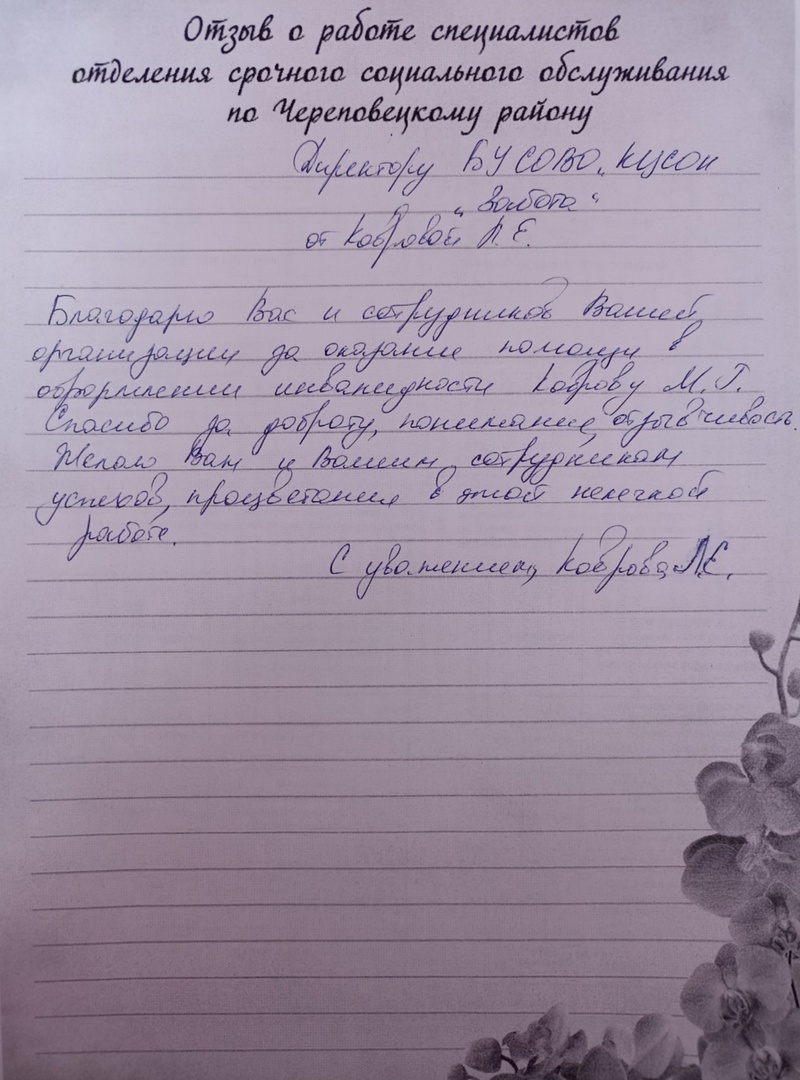 Отзыв о работе специалистов
отделения срочного социального обслуживания
по Череповецкому району
Директору БУ СО ВО „КЦСОН
„Забота“
от Ковровой Л. Е.
Благодарю Вас и сотрудников Вашей
организации за оказание помощи в
оформлении инвалидности Коврову М. Г.
Спасибо за доброту, понимание, отзывчивость.
Желаю Вам и Вашим сотрудникам
успехов, процветания в этой нелегкой
работе.
С уважением, Коврова Л.Е.